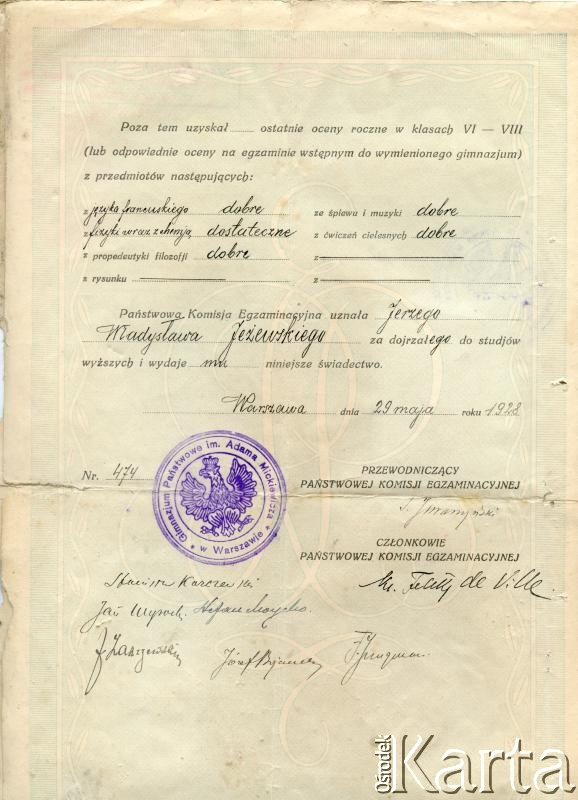 Poza tem uzyskał ostatnie oceny roczne w klasach VI — VIII
(lub odpowiednie oceny na egzaminie wstępnym do wymienionego gimnazjum)
z przedmiotów następujących:
z języka francuskiego dobre ze śpiewu i muzyki dobre
z fizyki wraz z chemją dostateczne z ćwiczeń cielesnych dobre
z propedeutyki filozofji dobre z
z rysunku z
Państwowa Komisja Egzaminacyjna uznała Jerzego
Władysława Jeżewskiego za dojrzałego do studjów
wyższych i wydaje mu niniejsze świadectwo.
Warszawa dnia 29 maja roku 1928
Nr. 474
Gimnazjum Państwowe im. Adama Mickiewicza
w Warszawie
PRZEWODNICZĄCY
PAŃSTWOWEJ KOMISJI EGZAMINACYJNEJ
CZŁONKOWIE
PAŃSTWOWEJ KOMISJI EGZAMINACYJNEJ
de Ville
Jan Stefan
Józef
Ośrodek
Karta